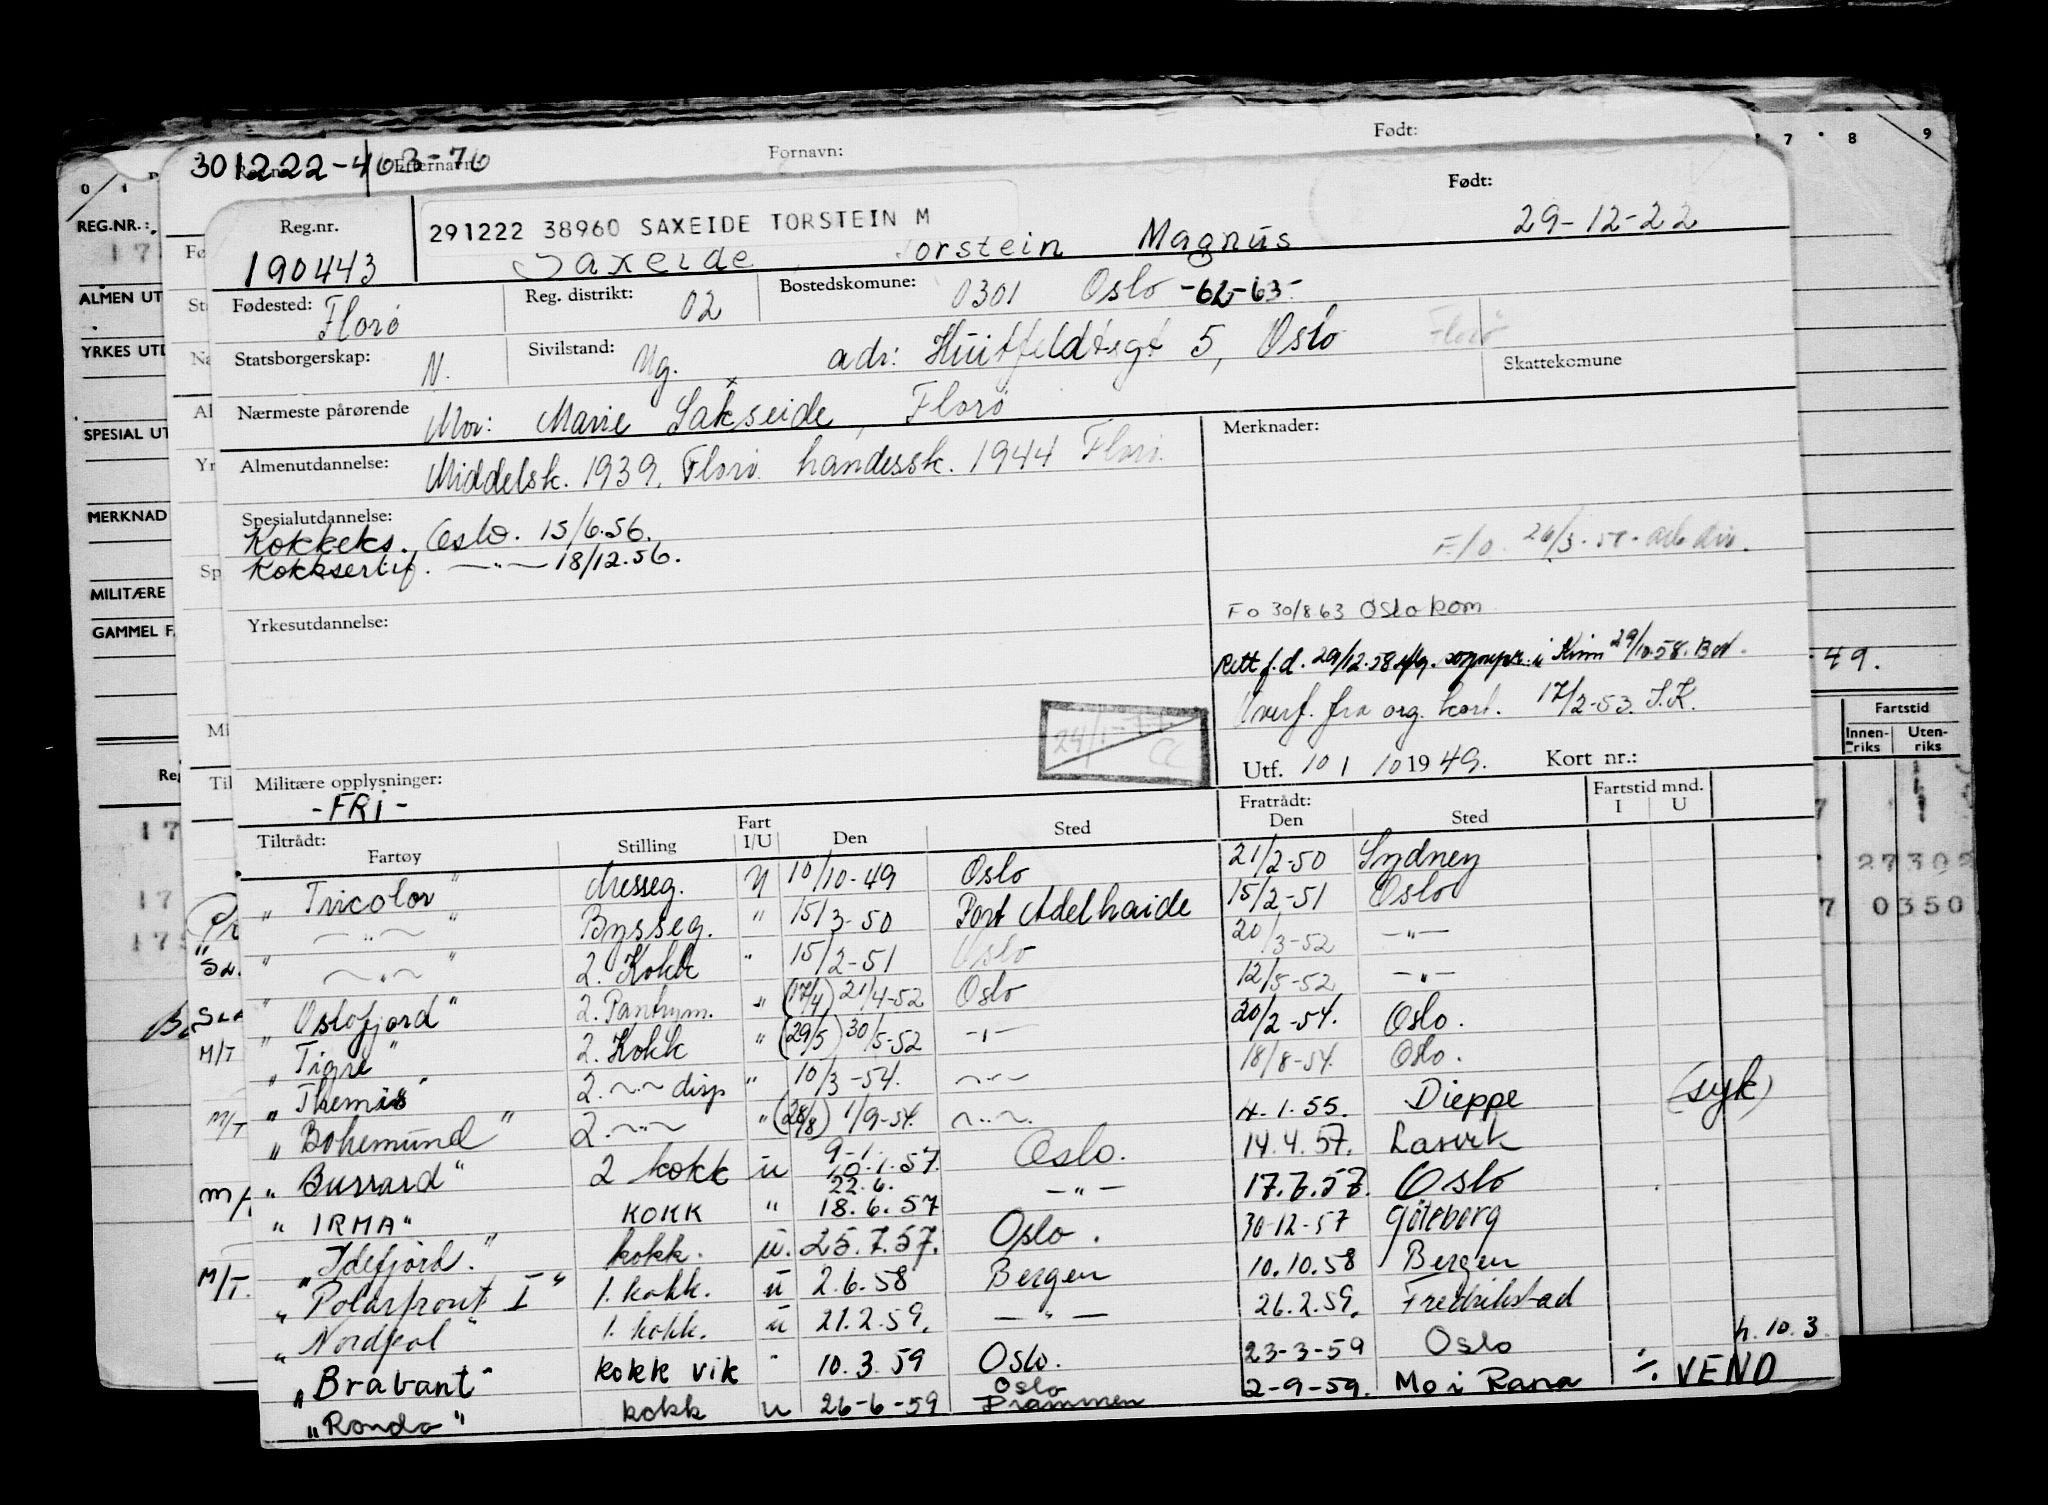 Født:
Fornavn:
301222-46
Født:
291222 38960 SAXEIDE TORSTEIN M
Reg.nr.
190443
Saxeide Torstein Magnus 29-12-22
Fødested: Florø
Reg. distrikt: 02
Bostedskomune: 0301 Oslo -62-63-
Statsborgerskap: N.
Sivilstand: Ug.
adr: Huitfeldtsgt 5, Oslo
Florø
Skattekomune
Nærmeste pårørende Mor: Marie Sakseide, Florø
x
Almenutdannelse: Middelsk. 1939, Florø. handelssk. 1944 Florø.
Merknader:
Spesialutdannelse:
Kokkeks. Oslo. 15/6.56.
Kokksertif. —"— 18/12.56.
F/o. 26/3-58-
Yrkesutdannelse:
Fo 30/8 63 Oslo kom
Rett f.d. 29/12-58 i Kinn 29/10-58.
Overf. fra org. kort. 17/2-53. S.K.
Utf. 10 / 10 1949. Kort nr.:
Militære opplysninger:
-FRI-
Tiltrådt:
Fratrådt:
Fartstid mnd.
Fartøy Stilling Fart I/U Den Sted Den Sted I U
"Tricolor" Messeg. U 10/10-49 Oslo 21/2-50 Sydney
" —"— " Bysseg. " 15/3-50 Port Adelhaide 15/2-51 Oslo
" —"— " 2. Kokk " 15/2-51 Oslo 20/3-52 —"—
"Oslofjord" 2. Pantrym. " (17/4) 21/4-52 Oslo 12/5-52 —"—
M/T "Tigre" 2. Kokk " (29/5) 30/5-52 —"— 20/2-54. Oslo.
"Themis" 2. —"— disp " 10/3-54. —"— 18/8-54. Oslo.
M/T "Bohemund" 2. —"— " (28/8) 1/9-54. —"— 4.1.55. Dieppe (syk)
"Burrard" 2 kokk u 9-1. 10.1.57. Oslo. 14.4.57. Larvik
"IRMA" KOKK " 22.6. 18.6.57 —"— 17.7.57. Oslo
"Idefjord." kokk. u. 25.7.57. Oslo. 30-12-57 Göteborg
M/T. "Polarfront I" 1. kokk. u 2.6.58 Bergen 10.10.58 Bergen
"Nordpol" 1. kokk. u 21.2.59. —"— 26.2.59. Fredrikstad
"Brabant" kokk vik " 10.3.59 Oslo. 23-3-59 Oslo
h.10.3.
"Ronda" kokk u 26-6-59 Oslo Drammen 2-9-59. Mo i Rana ÷ VEND
REG.NR.:
ALMEN UT
YRKES UTD
SPESIAL UT
MERKNAD
MILITÆRE
GAMMEL F.
7 8 9
49.
Fartstid
Innen-riks Uten-riks
27302
0350